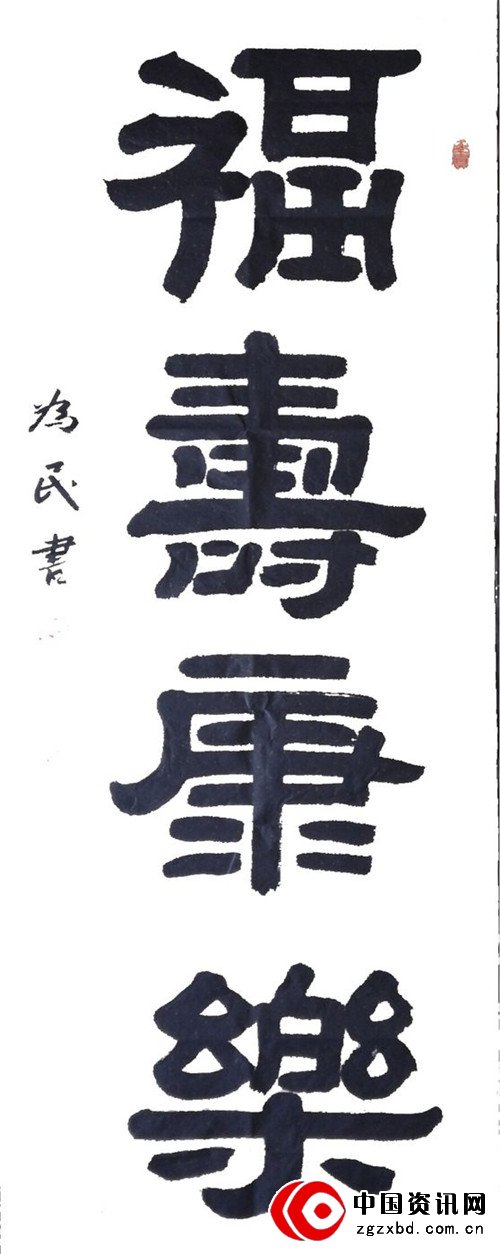 福壽康樂
為民書
中国资讯网
zgzxbd.com.cn